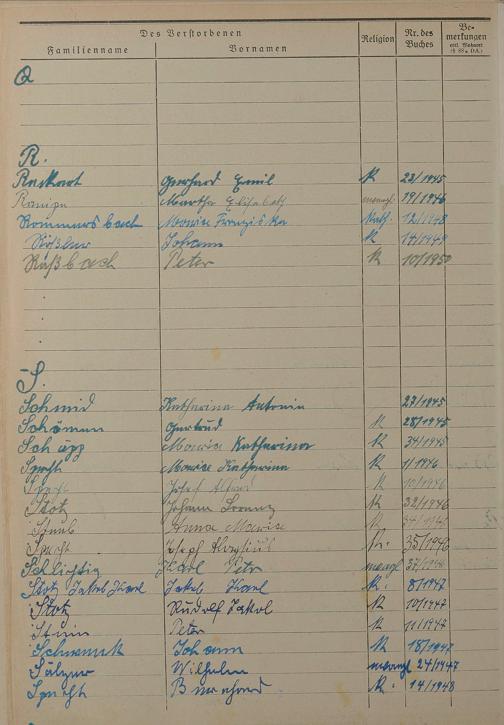 Des Verstorbenen
Familienname Vornamen Religion Nr. des Buches Bemerkungen
Q
R.
Reckert Gerhard Emil K 23/1945
Martha Elisabeth evangl. 19/1946
Rommersbach Maria Franziska Kath. 12/1948
Rößler Johann K 14/1948
Raßbach Peter K 10/1950
S.
Schmid Katharina Antonia 27/1945
Schömann Gertrud K 28/1945
Schöpp Maria Katharina K 34/1945
Specht Maria Katharina K 1/1946
Josef Alfred K 10/1946
Stotz Johann K 32/1946
Staub Anna Maria K
Specht Joseph K. 35/1946
Schlichtig Karl Peter evangl 37/1946
Stotz Jakob Karl Jakob Karl K. 8/1947
Stotz Rudolf Jakob K 10/1947
Stein Peter K 11/1947
Schwank Johann K 18/1947
Sälzer Wilhelm evangl 24/1947
Specht Bernhard K. 14/1948